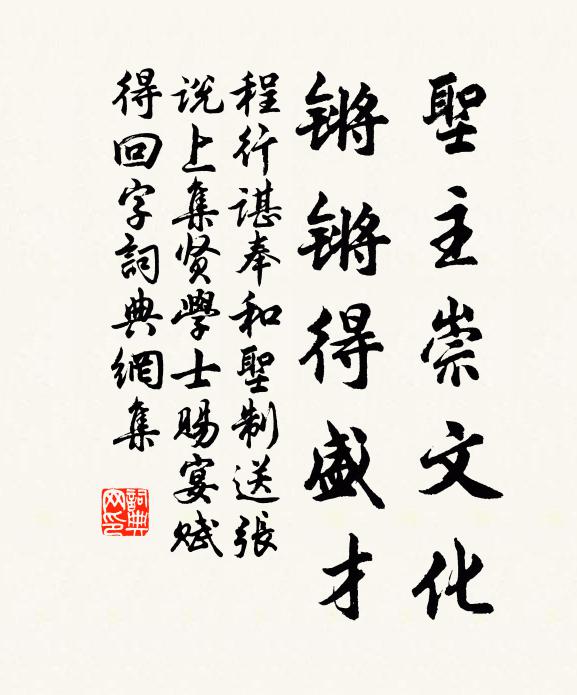 聖主崇文化
锵锵得盛才
程行谌奉和聖制送張
说上集贤學士賜宴赋
得回字詞典網集
詞典
网印